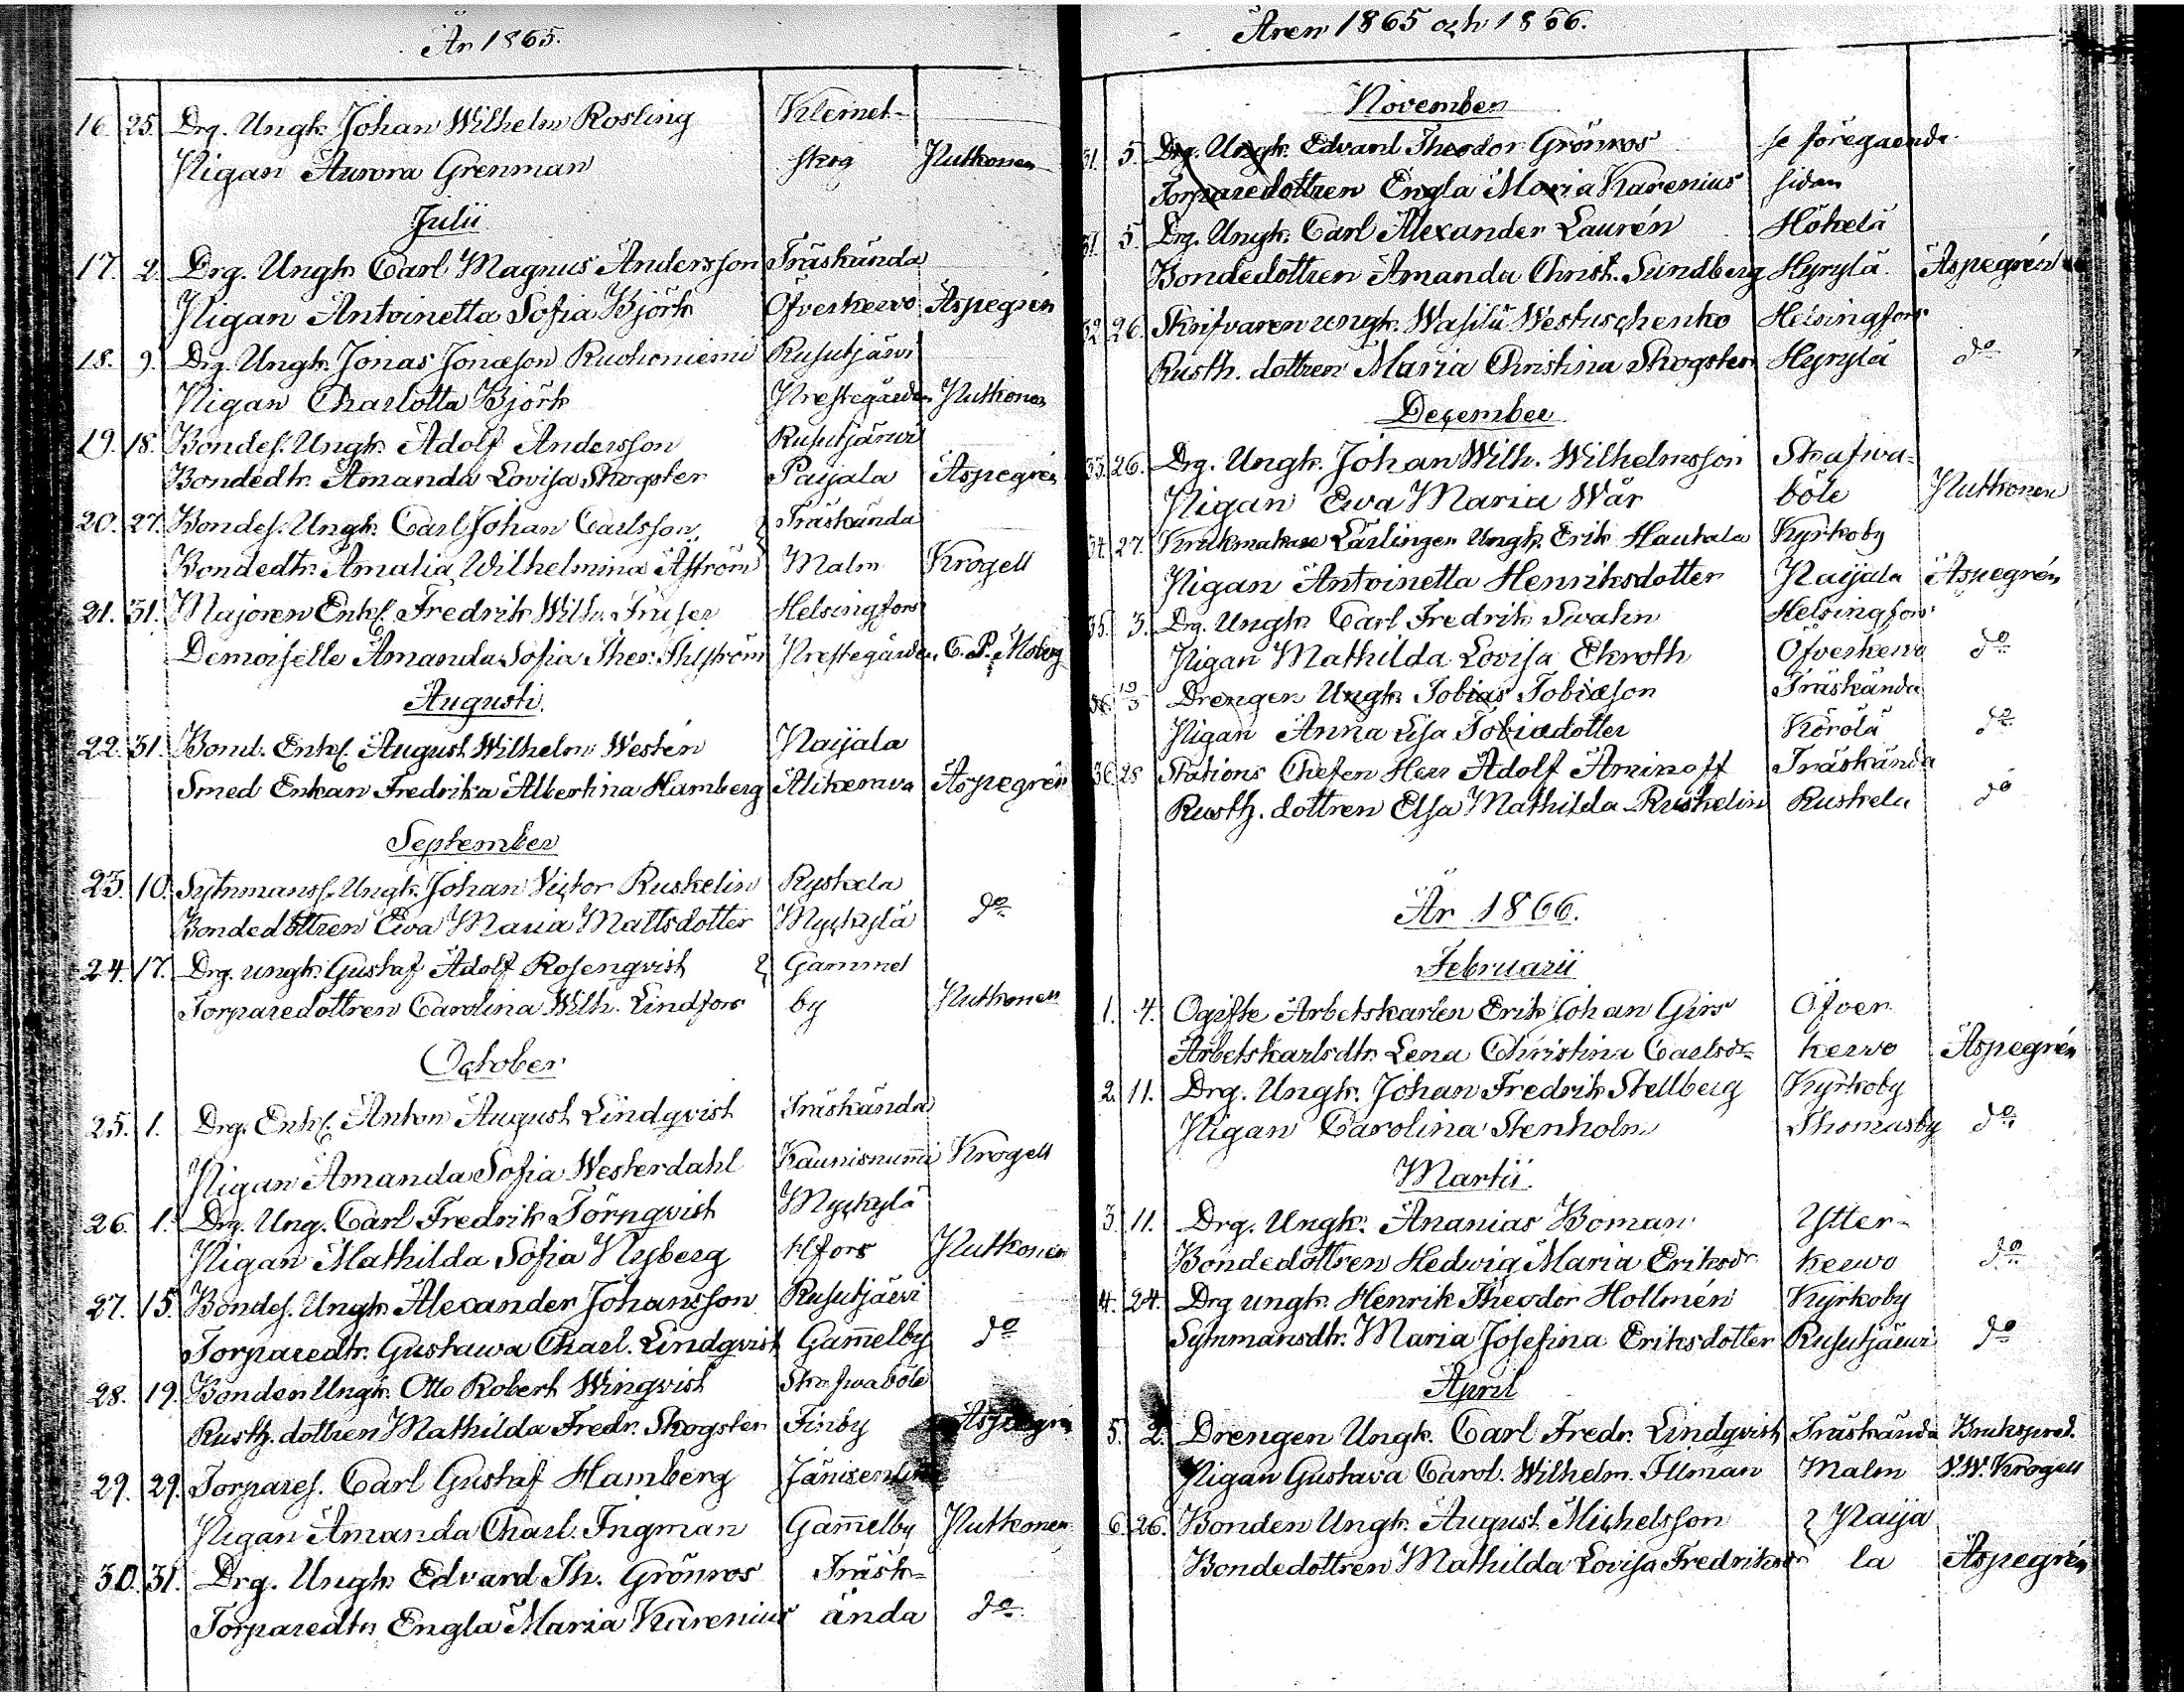 År 1865.
16. 25. Drg. Ungk. Johan Wilhelm Rosling Klemet-
Pigan Aurora Grenman skog Putkonen
Julii
17. 2. Drg. Ungk. Carl Magnus Andersson Träskända
Pigan Antoinetta Sofia Björk Öfverkervo Aspegren
18. 9. Drg. Ungk. Jonas Jonason Ruohoniemi Rusutjärvi
Pigan Charlotta Björk Prestegården Putkonen
19. 18. Bondes. Ungk. Adolf Andersson Rusutjärvi
Bondedtr. Amanda Lovisa Skogster Paijala Aspegrén
20. 27. Bondes. Ungk. Carl Johan Carlsson Träskända
Bondedtr. Amalia Wilhelmina Åström Malm Krogell
21. 31. Majoren Enkl. Fredrik Wilh. Fraser Helsingfors
Demoiselle Amanda Sofia Ther. Prestegården C. P. Moberg
Augusti.
22. 31. Bond. Enkl. August Wilhelm Westén Paijala
Smed Enkan Fredrika Albertina Hamberg Alikerava Aspegrén
September
23. 10. Sytnmanss. Ungk. Johan Victor Ruskelin Ryskela
Bondedottren Eva Maria Mattsdotter Myckylä do
24. 17. Drg. ungk. Gustaf Adolf Rosenqvist Gammel
Torparedottren Carolina Wilh. Lindfors by Putkonen
October
25. 1. Drg. Enkl. Anton August Lindqvist Träskända
Pigan Amanda Sofia Westerdahl Kaunisnum̄i Krogell
26. 1. Drg. Ung. Carl Fredrik Törnqvist Myckylä
Pigan Mathilda Sofia Nyberg Hfors Putkonen
27. 15. Bondes. Ungk. Alexander Johansson Rusutjärvi
Torparedtr. Gustawa Charl. Lindqvist Gam̄elby do
28. 19. Bonden Ungk. Otto Robert Winqvist Skafwaböle
Rusth. dottren Mathilda Fredr. Skogster Finby Aspegrén
29. 29. Torpares. Carl Gustaf Hamberg
Pigan Amanda Charl. Ingman Gam̄elby Putkonen
30. 31. Drg. Ungk. Edvard Th. Grönros Träsk-
Torparedtr. Engla Maria Karenius ända do
Åren 1865 och 1866.
November
31. 5. Drg. Ungk. Edvard Theodor Grönros se föregaende
Torparedottren Engla Maria Karenius sidan
31. 5. Drg. Ungk. Carl Alexander Laurén Hökelä
Bondedottren Amanda Christ. Sundberg Hyrylä Aspegrén
32. 26. Skrifvaren ungk. Wasilii Westuschenko Helsingfors
Rusth. dottren Maria Christina Skogster Hyrylä do
December
33. 26. Drg. Ungk. Johan Wilh. Wilhelmsson Skafwa-
Pigan Ewa Maria Wår böle Putkonen
34. 27. Krukmakare Lärlingen Ungk. Erik Hautala Kyrkoby
Pigan Antoinetta Henriksdotter Paijala Aspegrén
35. 3. Drg. Ungk. Carl Fredrik Svahn Helsingfors
Pigan Mathilda Lovisa Ekroth Öfverkervo do
36. Drengen Ungk. Tobias Tobiason Träskända
Pigan Anna Lisa Tobiadotter Körölä do
36. 28 Stations Chefen Herr Adolf Aminoff Träskända
Rusth. dottren Elsa Mathilda Ruskelin Ruskela do
År 1866.
Februarii
1. 4. Ogifte Arbetskarlen Erik Johan Girs Öfver
Arbetskarlsdtr. Lena Christina Carlsdr kervo Aspegrén
2. 11. Drg. Ungk. Johan Fredrik Stellberg Kyrkoby
Pigan Carolina Stenholm Thomasby do
Martii.
3. 11. Drg. Ungk. Ananias Boman Ytter-
Bondedottren Hedwig Maria Eriksdr kervo do
4. 24. Drg ungk. Henrik Theodor Hollmén Kyrkoby
Sytnmansdtr. Maria Josefina Eriksdotter Rusutjärvi do
April
5. 2. Drengen Ungk. Carl Fredr. Lindqvist Träskända Brukspred.
Pigan Gustava Carol. Wilhelm. Illman Malm V. W. Krogell
6. 26. Bonden Ungk. August Michelsson Paija
Bondedottren Mathilda Lovisa Fredriksdr la Aspegrén